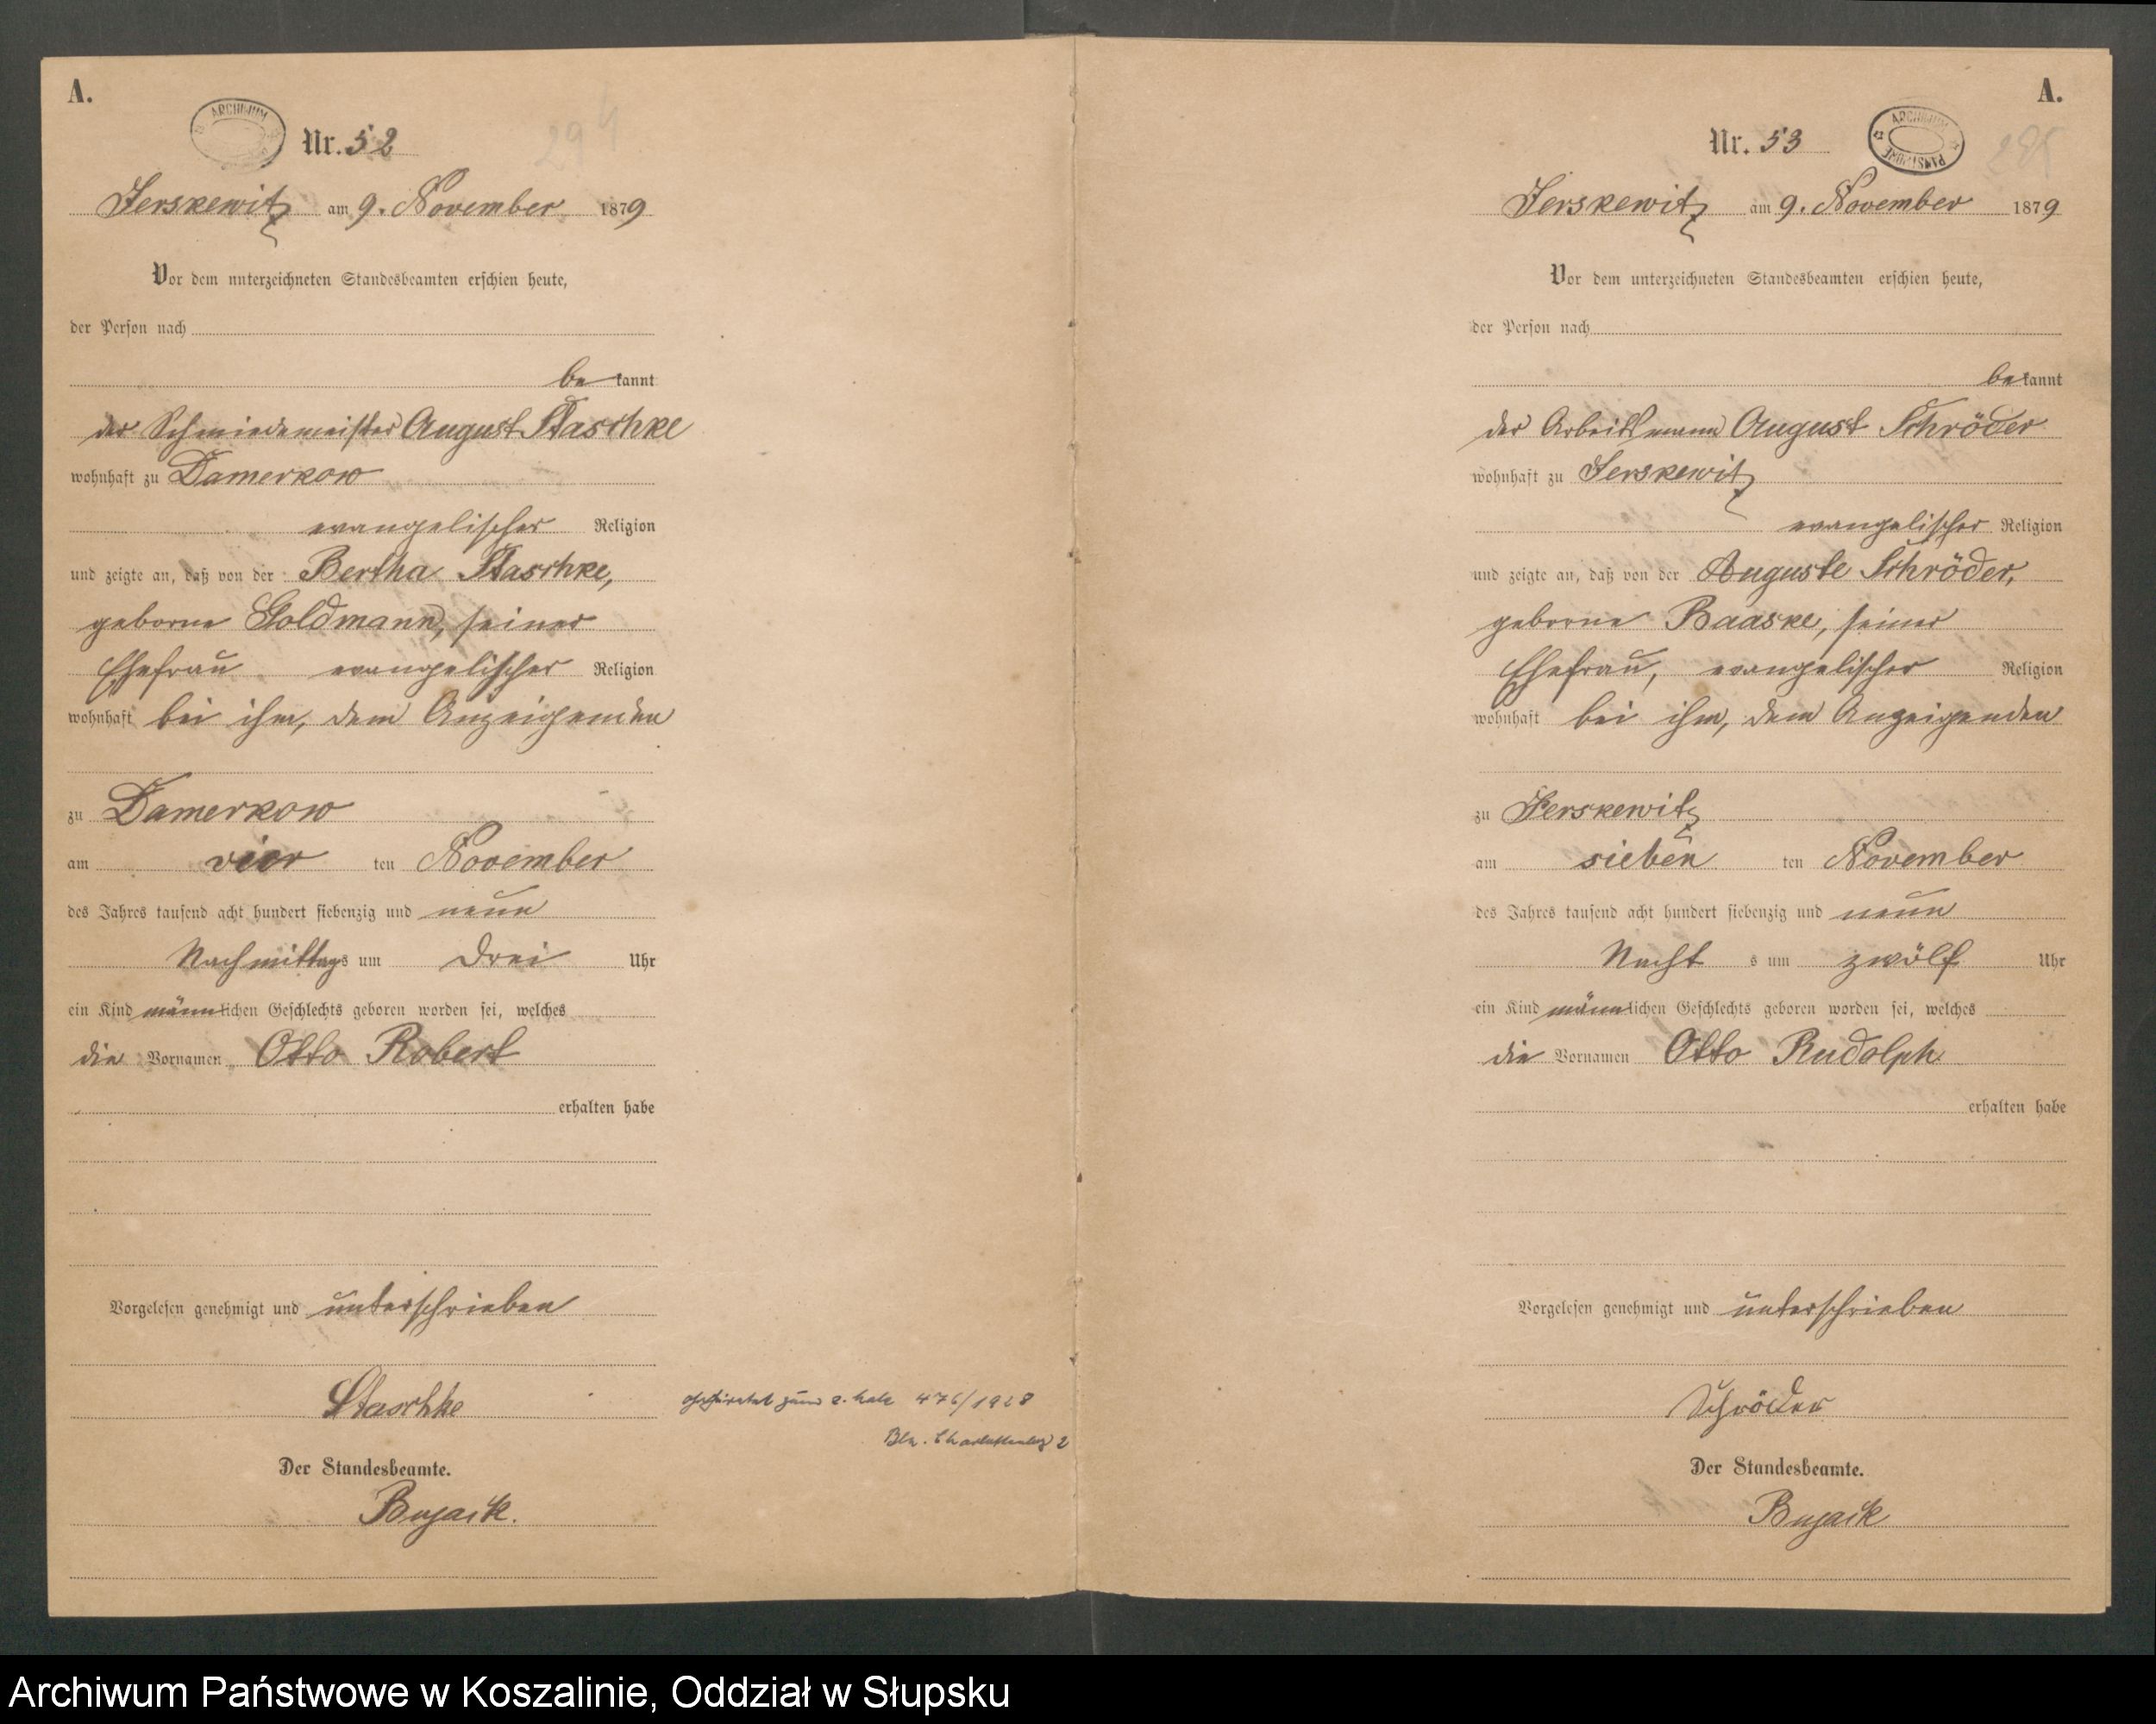 A.
ARCHIWUM
Nr. 52
294
Jerskewitz am 9. November 1879
Vor dem unterzeichneten Standesbeamten erschien heute,
der Person nach
bekannt
der Schmiedemeister August Staschke
wohnhaft zu Damerkow
evangelischer Religion
und zeigte an, daß von der Bertha Staschke,
geborne Goldmann, seiner
Ehefrau evangelischer Religion
wohnhaft bei ihm, dem Anzeigenden
zu Damerkow
am vier ten November
des Jahres tausend acht hundert siebenzig und neun
Nachmittags um drei Uhr
ein Kind männlichen Geschlechts geboren worden sei, welches
die Vornamen Otto Robert
erhalten habe
Vorgelesen genehmigt und unterschrieben
Staschke
Der Standesbeamte.
Bujack.
geheiratet zum 2. Male 476/1928
Bln. Charlottenbg 2
A.
Nr. 53
ARCHIWUM PAŃSTWOWE
295
Jerskewitz am 9. November 1879
Vor dem unterzeichneten Standesbeamten erschien heute,
der Person nach
bekannt
der Arbeitsmann August Schröder
wohnhaft zu Jerskewitz
evangelischer Religion
und zeigte an, daß von der Auguste Schröder,
geborne Baaske, seiner
Ehefrau, evangelischer Religion
wohnhaft bei ihm, dem Anzeigenden
zu Jerskewitz
am sieben ten November
des Jahres tausend acht hundert siebenzig und neun
Nacht s um zwölf Uhr
ein Kind männlichen Geschlechts geboren worden sei, welches
die Vornamen Otto Rudolph
erhalten habe
Vorgelesen genehmigt und unterschrieben
Schröder
Der Standesbeamte.
Bujack
Archiwum Państwowe w Koszalinie, Oddział w Słupsku